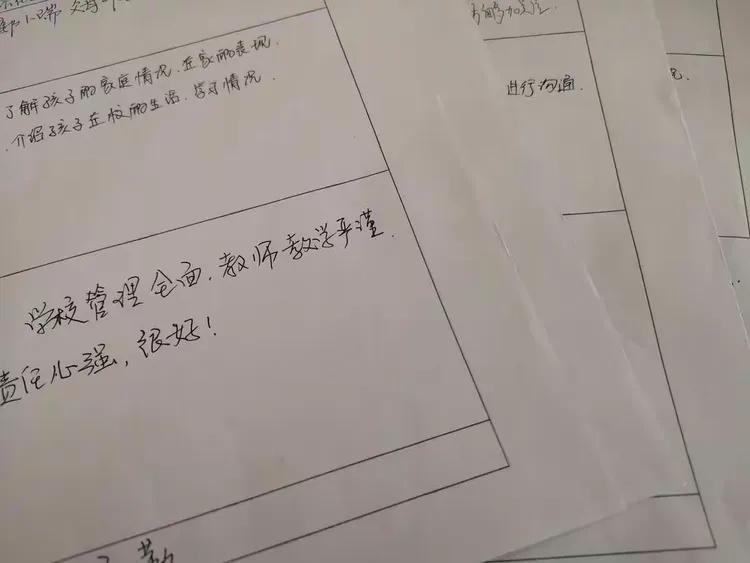 了解孩子的家庭情况.在家的表现.
介绍孩子在校的生活.学习情况.
学校管理全面.教师教学严谨.
责任心强,很好!
进行沟通.